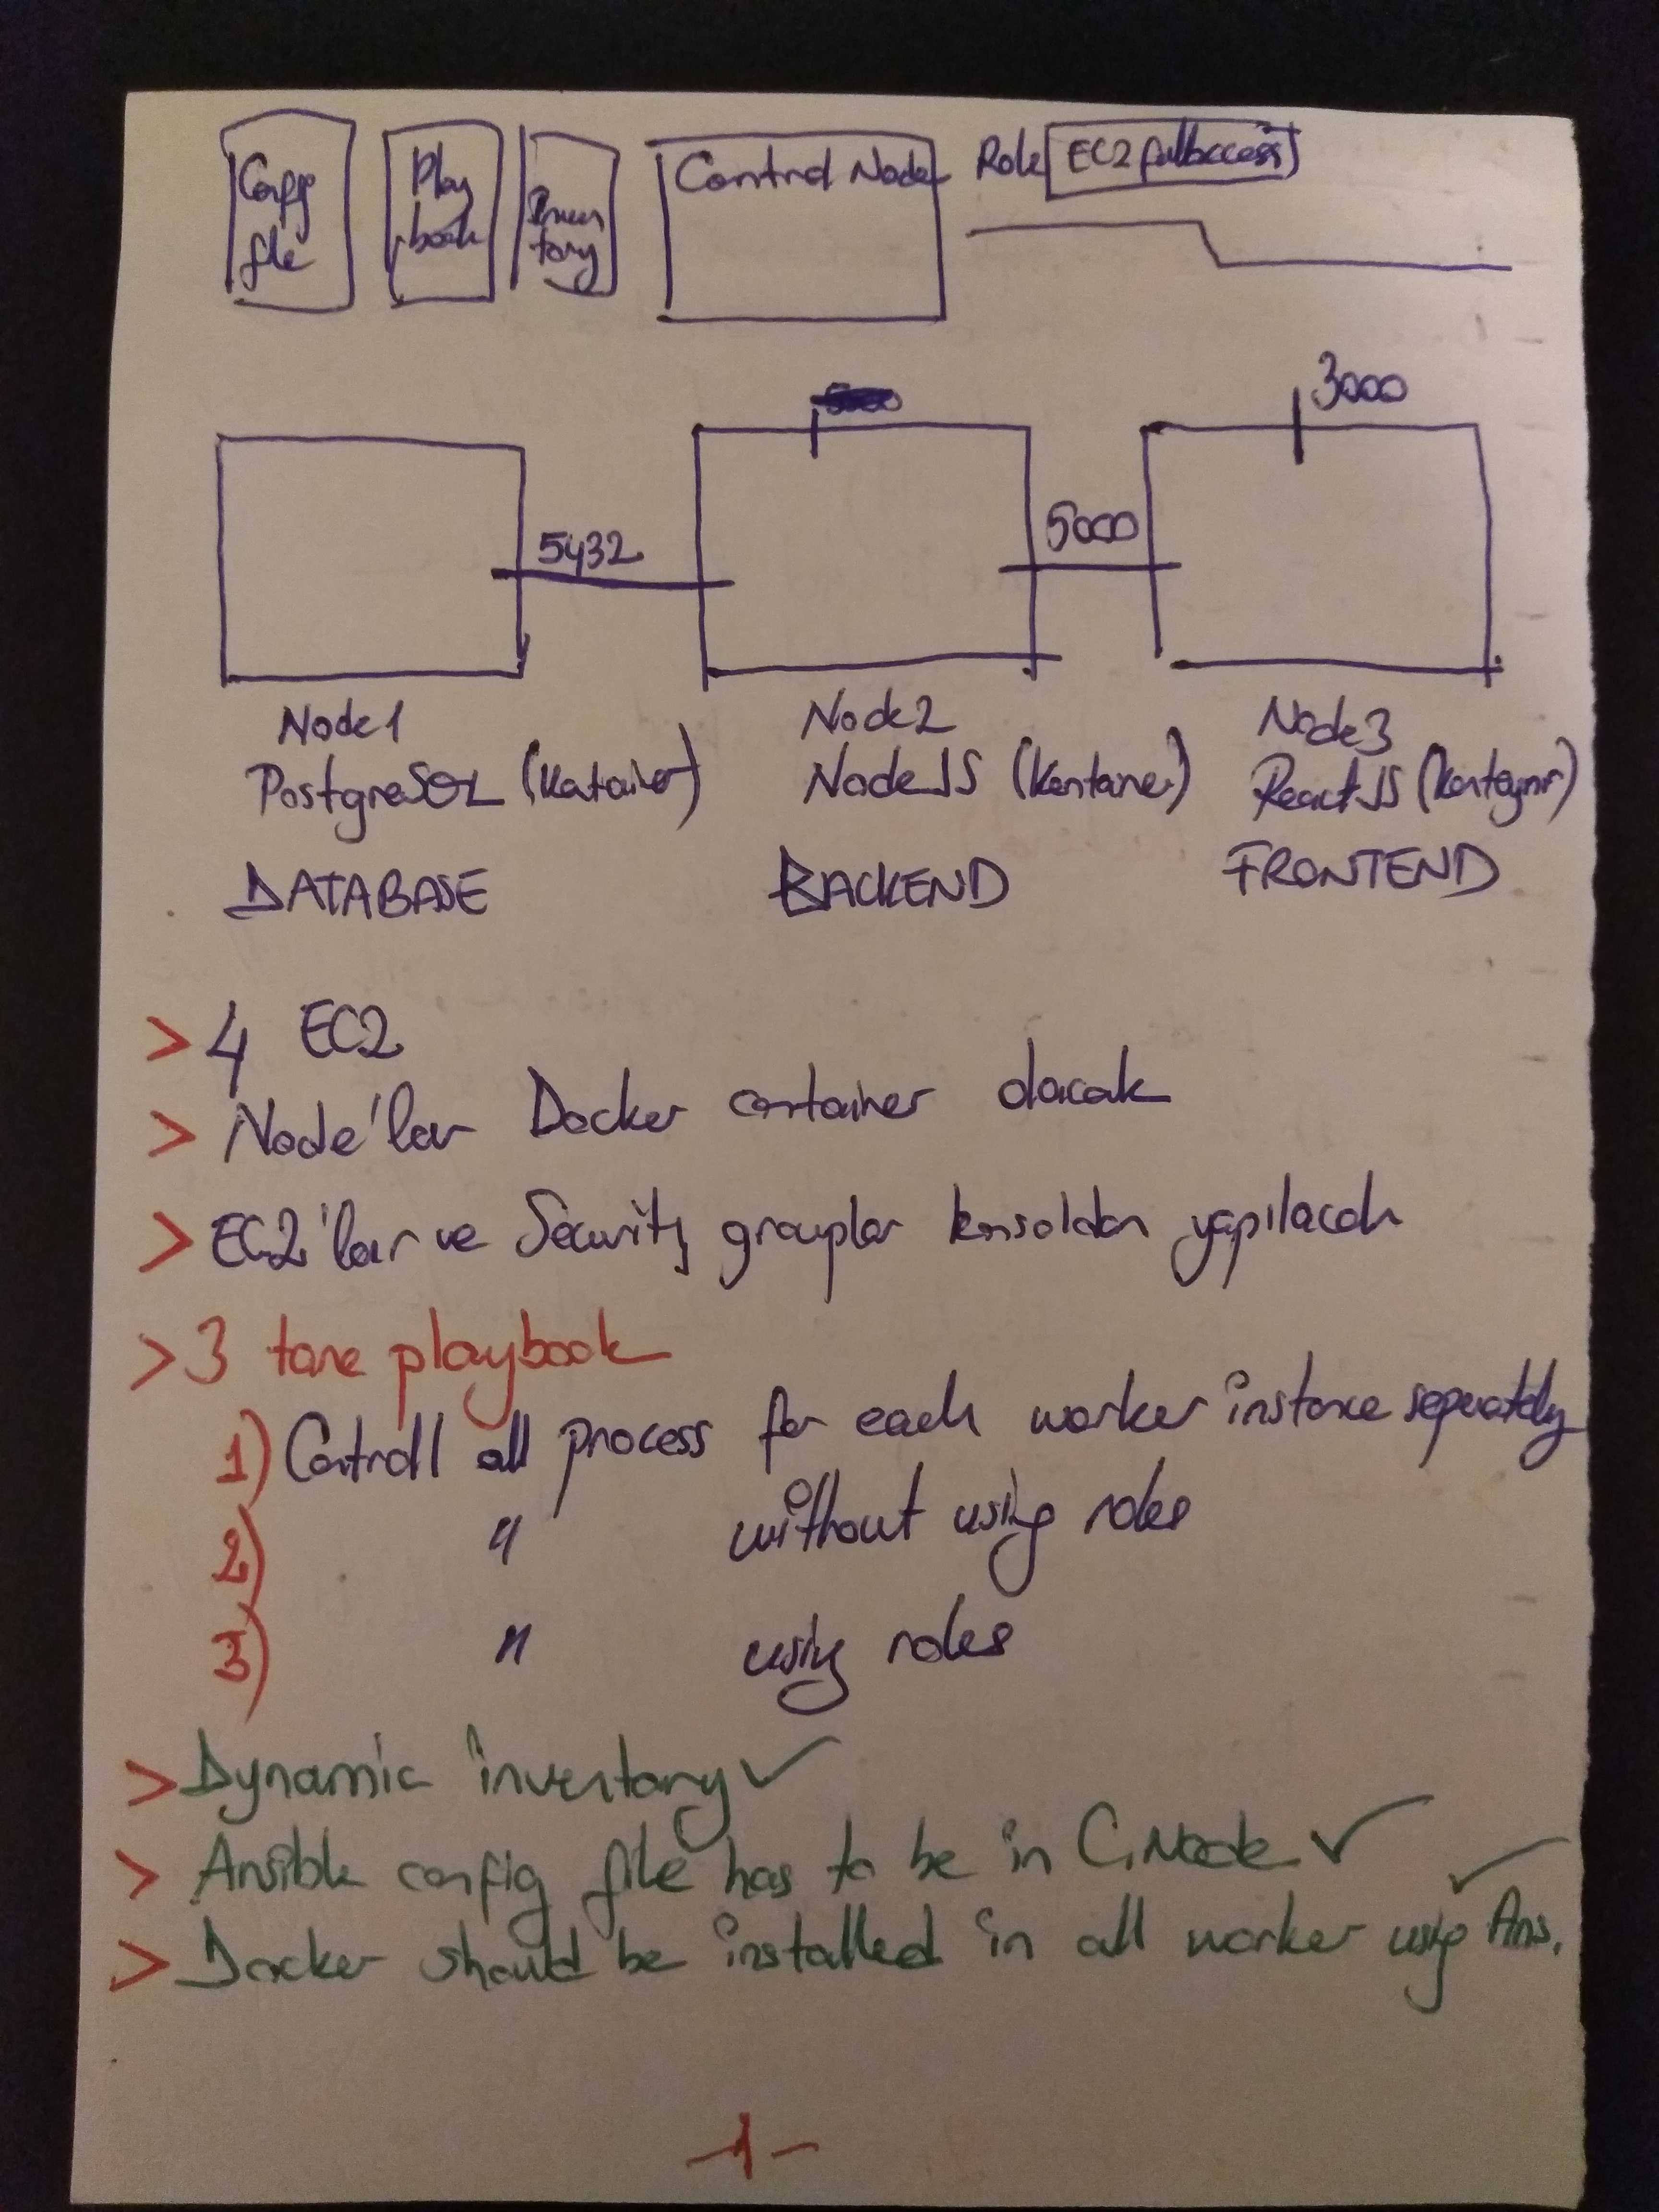 Config file
Play book
Inven tory
Control Node
Role EC2 fullaccess
3000
5432
5000
Node1
Node2
Node3
PostgreSQL
NodeJS
ReactJS
DATABASE
BACKEND
FRONTEND
> 4 EC2
> Node'lar Docker container olacak
> EC2'lar ve Security grouplar konsoldan yapılacak
> 3 tane playbook
1) Controll all process for each worker instance seperately
2) " without using roles
3) " using roles
> Dynamic inventory ✓
> Ansible config file has to be in C.Node ✓
> Docker should be installed in all worker using Ans. ✓
-1-